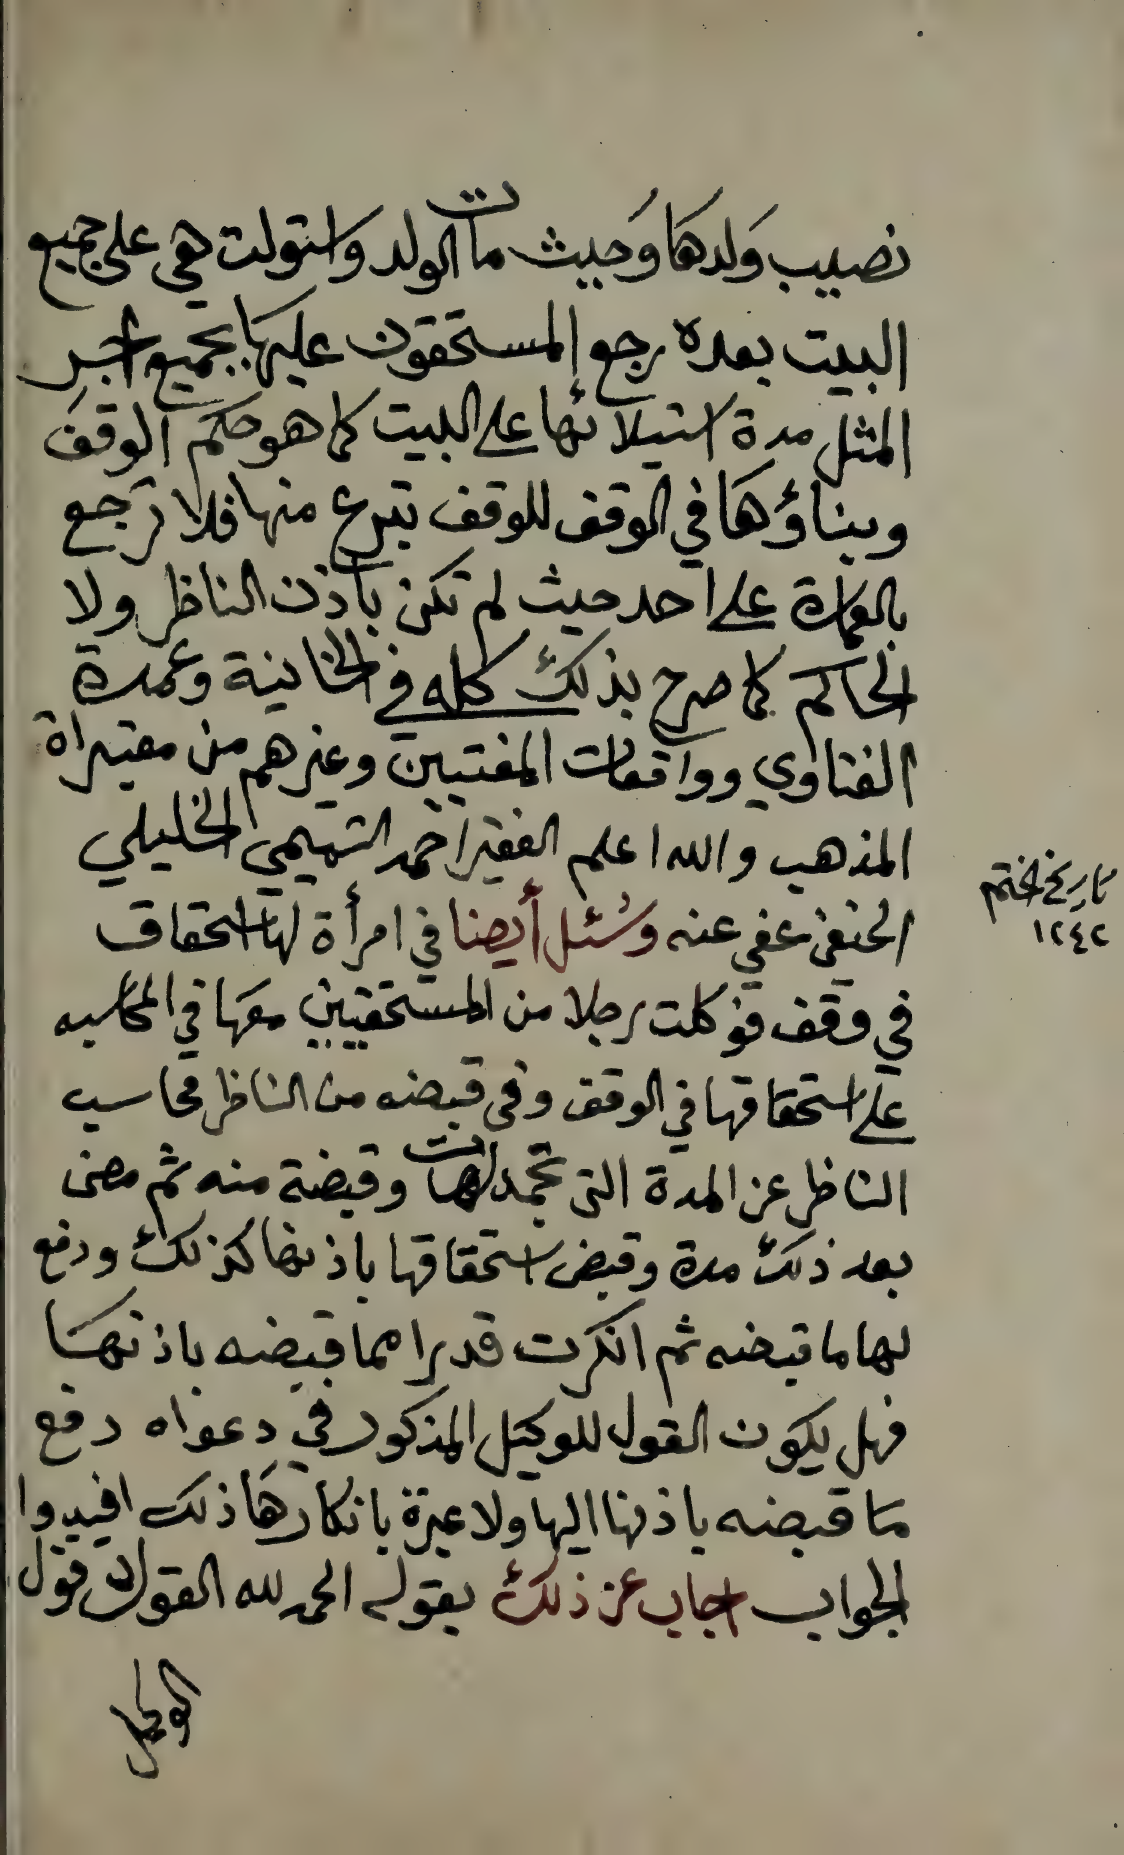 نصيب ولدها وحيث مات الولد واستولت هي على جميع
البيت بعده رجع المستحقون عليها بجميع اجر
المثل مدة استيلائها على البيت كما هو حكم الوقف
وبناؤها في الوقف للوقف تبرع منها فلا ترجع
بالعمارة على احد حيث لم تكن باذن الناظر ولا
الحاكم كما صرح بذلك كله في الخانية وعمدة
الفتاوي وواقعات المفتيين وغيرهم من معتبراة
المذهب والله اعلم الفقير احمد التميمي الخليلي
الحنفي عفي عنه وسئل أيضا في امرأة لها استحقاق
في وقف فوكلت رجلا من المستحقيين معها في المحاسبه
على استحقاقها في الوقف وفي قبضه من الناظر فحاسب
الناظر عن المدة التي تجمدت لها وقبضة منه ثم مضى
بعد ذلك مدة وقبض استحقاقها باذنها كذلك ودفع
لها ما قبضه ثم انكرت قدرا مما قبضه باذنها
فهل يكون القول للوكيل المذكور في دعواه دفع
ما قبضه باذنها اليها ولا عبرة بانكارها ذلك افيدوا
الجواب اجاب عن ذلك بقوله الحمد لله القول قول
الوكيل
تاريخ الختم
١٢٤٢